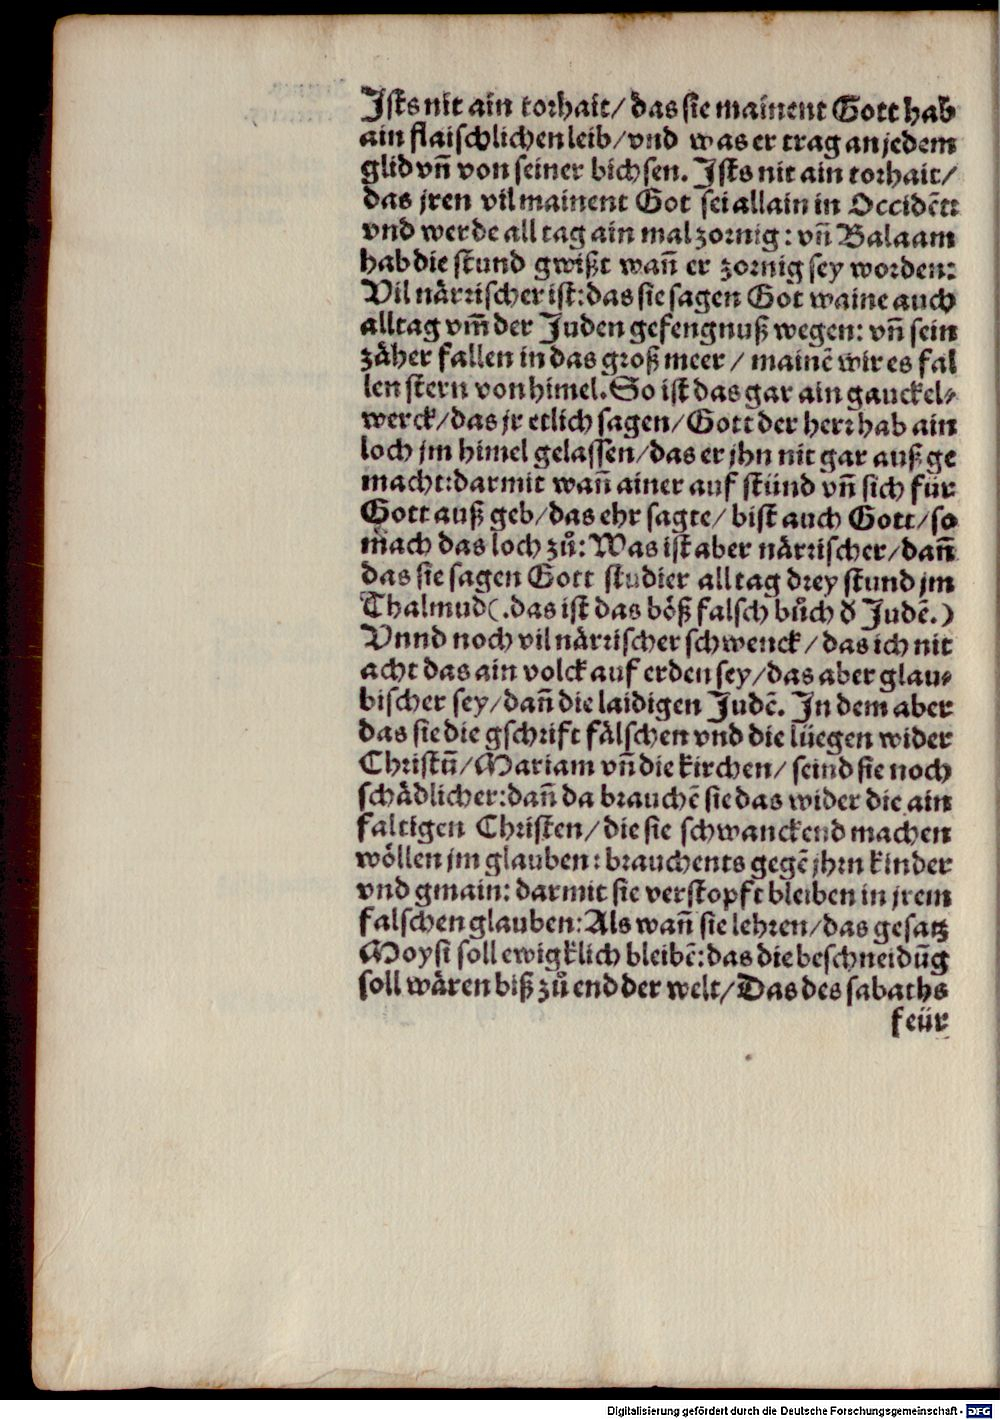 Ists nit ain torhait/ das sie mainent Gott hab
ain flaischlichen leib/ vnd was er trag an jedem
glid vn̄ von seiner bichsen. Ists nit ain torhait/
das jren vil mainent Got sei allain in Occidēt:
vnd werde all tag ain mal zornig: vn̄ Balaam
hab die stund gwißt wan̄ er zornig sey worden:
Vil närrischer ist: das sie sagen Got waine auch
alltag vm̄ der Juden gefengnuß wegen: vn̄ sein
zäher fallen in das groß meer / mainē wir es fal
len stern von himel. So ist das gar ain gauckel-
werck/ das jr etlich sagen/ Gott der herr hab ain
loch jm himel gelassen/ das er jhn nit gar auß ge
macht: darmit wan̄ ainer auf stünd vn̄ sich für
Gott auß geb/ das ehr sagte/ bist auch Gott/ so
mach das loch zů: Was ist aber närrischer/ dan̄
das sie sagen Gott studier all tag drey stund jm
Thalmud (.das ist das böß falsch bůch ď Judē.)
Vnnd noch vil närrischer schwenck/ das ich nit
acht das ain volck auf erden sey/ das aber glau-
bischer sey/ dan̄ die laidigen Judē. In dem aber
das sie die gschrift fälschen vnd die lüegen wider
Christū/ Mariam vn̄ die kirchen/ seind sie noch
schädlicher: dan̄ da brauchē sie das wider die ain
faltigen Christen/ die sie schwanckend machen
wöllen jm glauben: brauchents gegē jhrn kinder
vnd gmain: darmit sie verstopft bleiben in jrem
falschen glauben: Als wan̄ sie lehren/ das gesatz
Moysi soll ewigklich bleibē: das die beschneidūg
soll wären biß zů end der welt/ Das des sabaths
feür
Digitalisierung gefördert durch die Deutsche Forschungsgemeinschaft - DFG